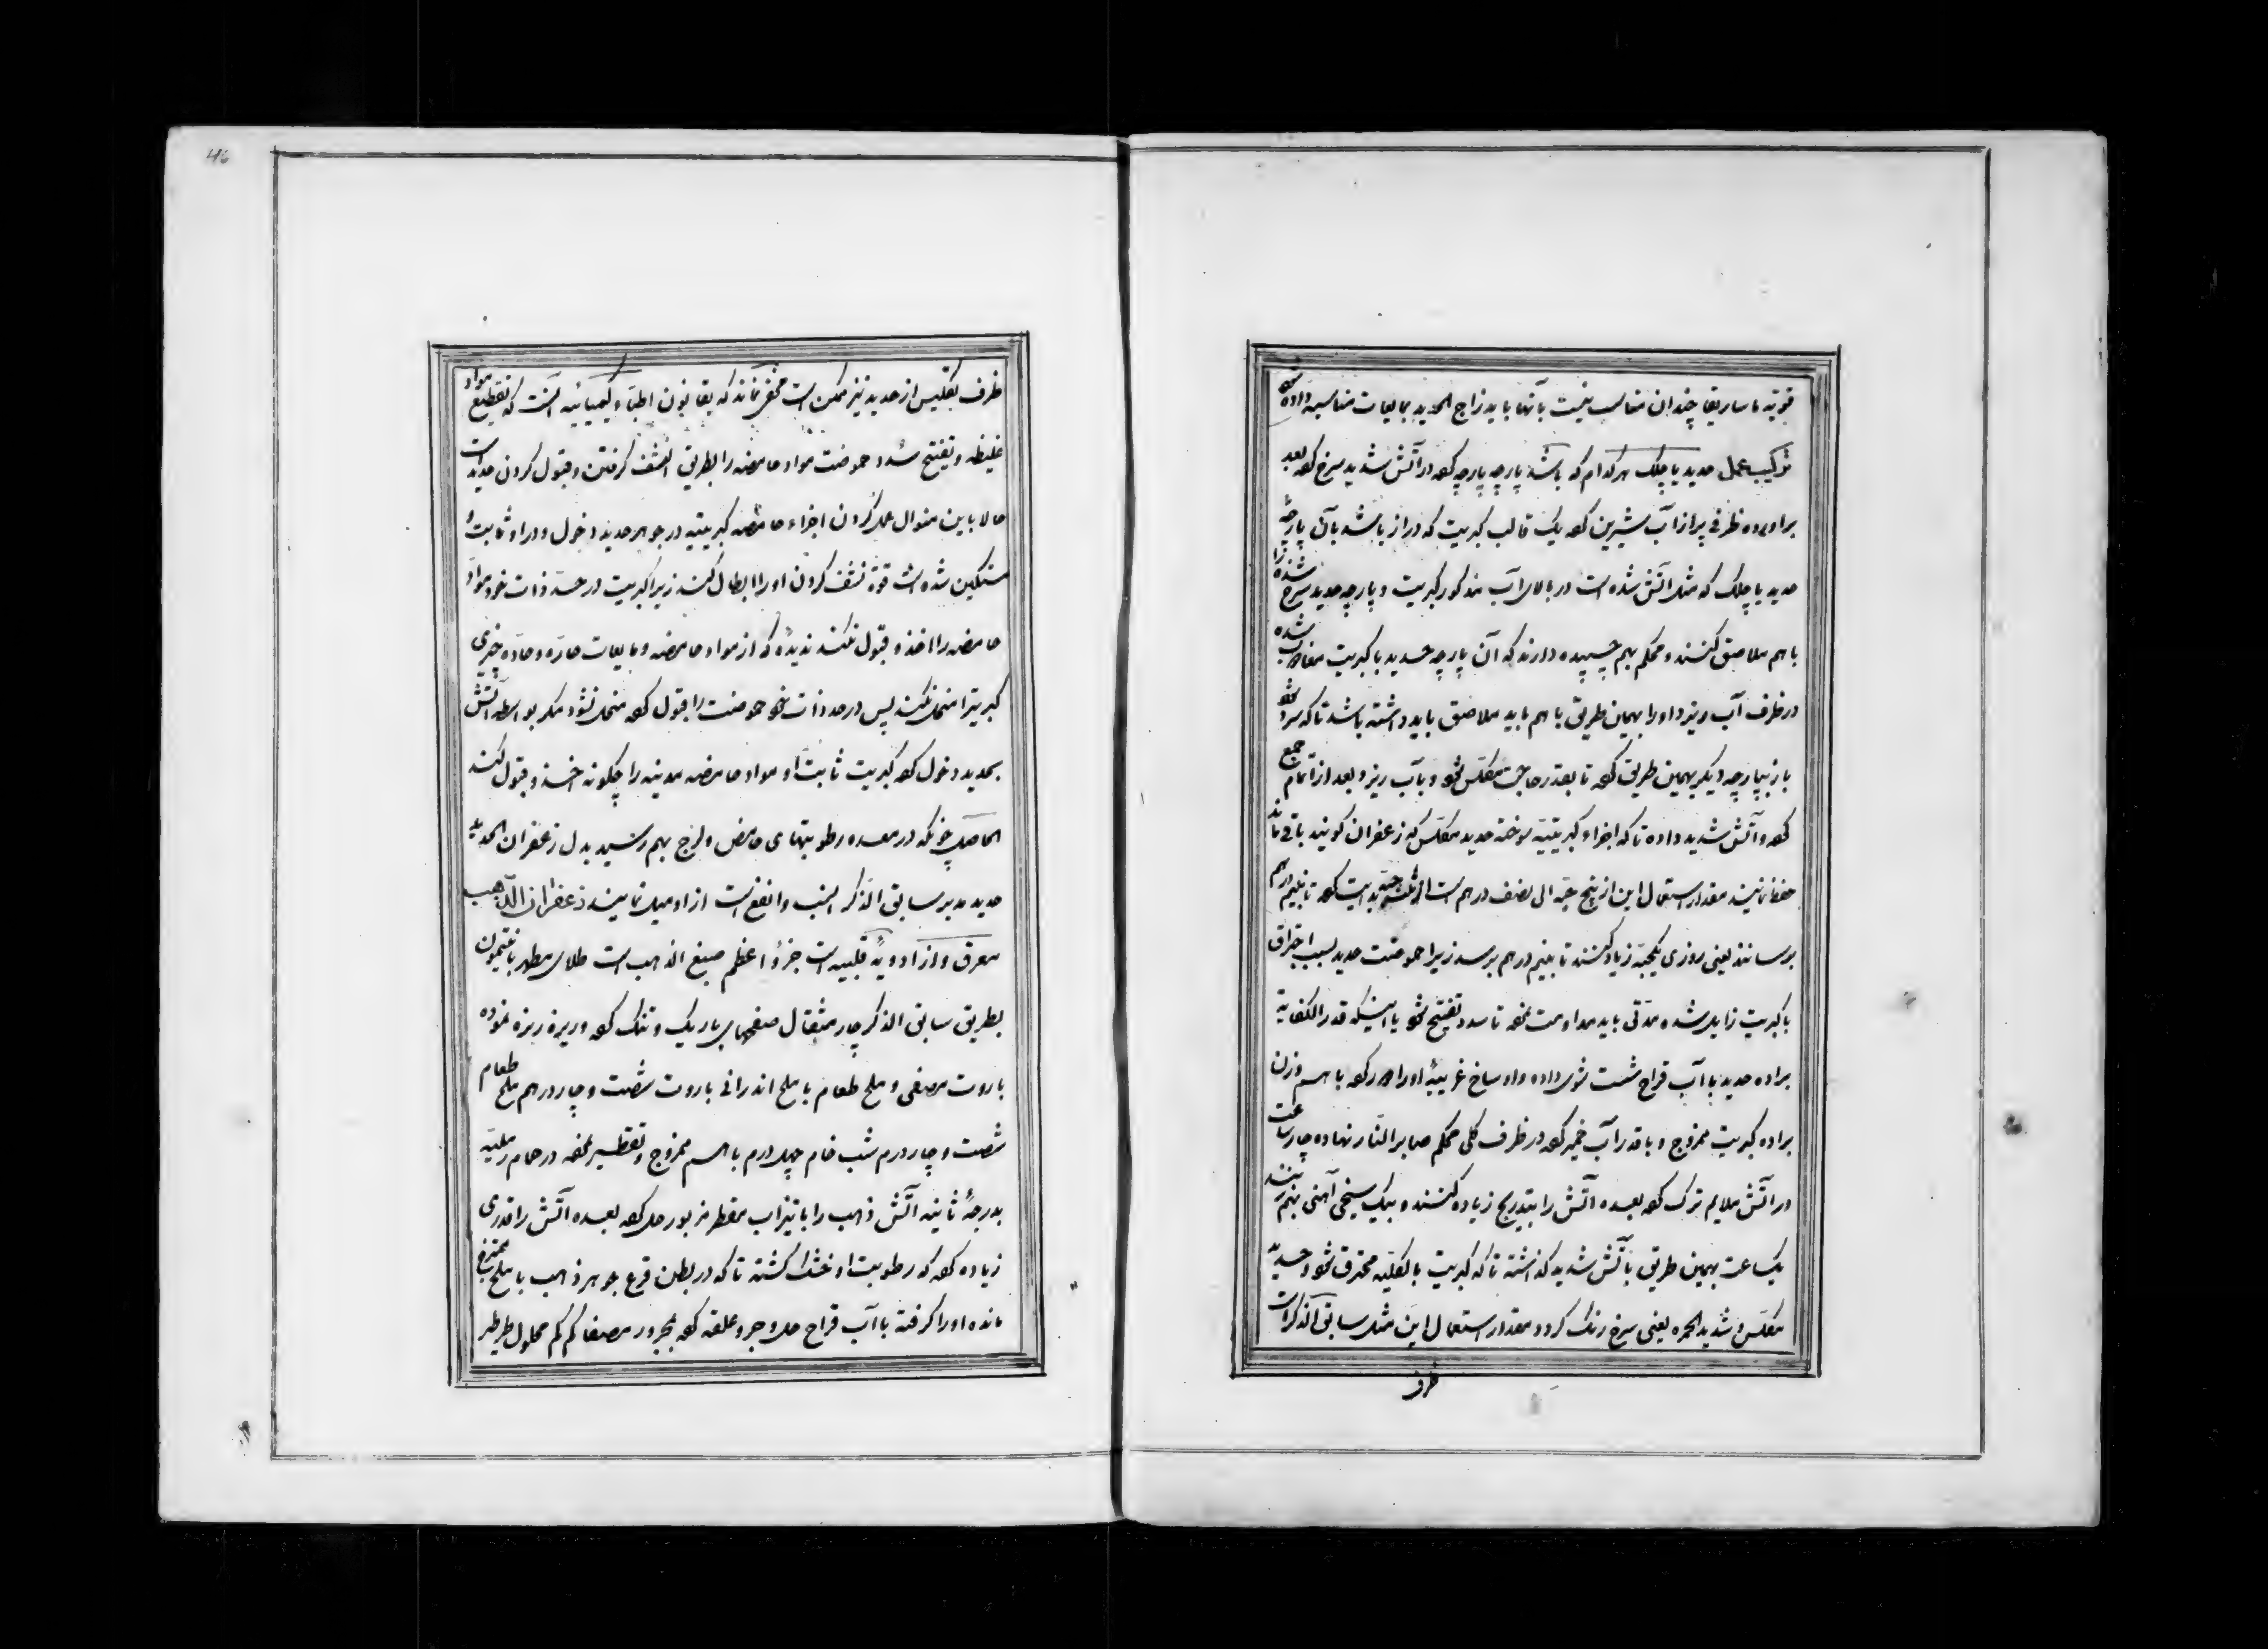 قویه ماساریقا چندان مناسب نیست بآنها باید زاج الحدید بمایعات مناسبه داده شود
ترکیب عمل حدید یا چلک هر کدام که باشد پارچه پارچه کعه در آتش شدید سرخ کعه بعد
براورده ظرفی پر از آب شیرین کعه یک قالب کبریت که دراز باشد بآن پارچهٔ
حدید یا چلک که مثل آتش شده است در بالای آب مذکور کبریت و پارچه حدید سرخ شده را
با هم ملاصق کنند و محکم بهم چسپیده دارند که آن پارچه حدید با کبریت شده
در ظرف آب ریزد او را بهمین طریق با هم باید ملاصق باید داشته باشد تا که سرد شود
باز پارچه دیگر بهمین طریق کعه تا بقدر حاجت مکلس شود و بآب ریزد بعد از اتمام جمع
کعه و آتش شدید داده تا که اجزاء کبریتیه سوخته حدید مکلس که زعفران گویند باقی ماند
حفظ نمایند مقدار استعمال این از پنج حبه الی نصف درهم است تا بنیم درهم
برسانند یعنی روزی یکحبه زیاد کنند تا بنیم درهم برسد زیرا حموضت حدید بسبب احتراق
با کبریت زایل شده مدتی باید مداومت نمعه تا سدد تفتیح شود یا اینکه قدر الکفایة
براده حدید با آب قراح شست شوی داده و اوساخ غریبهٔ او را دور کعه با هم وزن
براده کبریت ممزوج و با قدر آب خمیر کعه در ظرف کلی محکم صابر النار نهاده چار ساعت
در آتش ملایم ترک کعه بعده آتش را بتدریج زیاده کنند و بیک سیخی آهنی بهم زنند
یکساعت بهمین طریق بآتش شدید کذاشته تا که کبریت بالکلیه محترق شود و حدید
مکلس و شدید الحمره یعنی سرخ رنک کردد مقدار استعمال این مثل سابق الذکر است
ظرف
46
ظرف بتکلیس از حدید نیز ممکن است مخفی نماند که بقانون اطباء کیمیائیه آنست که تقطیع مواد
غلیظه و تفتیح سدد حموضت مواد حامضه را بطریق النشف کرفتن و قبول کردن حدید است
حالا باین منوال عمل کردن اجزاء حامضه کبریتیه در جوهر حدید دخول و در او ثابت و
متمکین شده است قوة نشف کردن او را ابطال کند زیرا کبریت در حد ذات خود مواد
حامضه را اخذ و قبول نکند ندیدهٔ که از مواد حامضه و مایعات حاره و حاده چیزی
کبریترا منحل نکند پس در حد ذات خود حموضت را قبول کعه منحل نشود مکر بواسطه آتش
بحدید دخول کعه کبریت ثابت او مواد حامضه معدنیه را چکونه اخذ و قبول کند
الحاصل چونکه در معده رطوبتهای حامض و لزج بهم رسید بدل زعفران الحدید
حدید مدبر سابق الذکر انسب و انفع است از او میل نمایند زعفران الذهب
معرق و از ادویهٔ قلبیه است جزؤ اعظم صبغ الذهب است طلای مطهر بانتیمون
بطریق سابق الذکر چار مثقال صفحهای باریک و تنک کعه و ریزه ریزه نموده
باروت مصفی و ملح طعام یا ملح اندرانی باروت شصت و چار درهم ملح طعام
شصت و چار درم شب خام چهل درم با هم ممزوج و تقطیر نمعه در حمام رملیه
بدرجهٔ ثانیه آتش ذهب را با تیزاب مقطر مزبور حل کعه بعده آتش را قدری
زیاده کعه که رطوبت او خشک کشته تا که در بطن قرع جوهر ذهب با ملح ممتزج
مانده او را کرفته با آب قراح حل و جر و علقه کعه مجرور مصفا کم کم محلول طرطیر